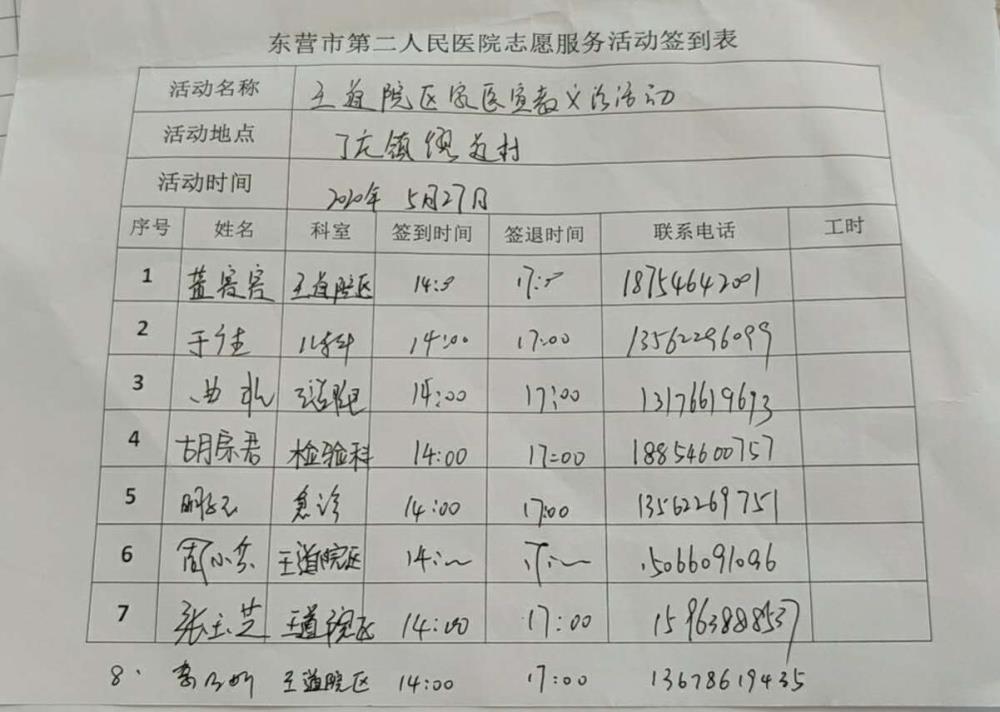 东营市第二人民医院志愿服务活动签到表
活动名称 王道院区家医宣教义诊活动
活动地点 丁庄镇 道村
活动时间 2020年 5月27日
序号 姓名 科室 签到时间 签退时间 联系电话 工时
1 王道院区 14:0 17:0 18754642001
2 于佳 儿科 14:00 17:00 13562296099
3 曲 王道院区 14:00 17:00 13176619693
4 胡宗君 检验科 14:00 17:00 18854600757
5 急诊 14:00 17:00 13562269751
6 周小 王道院区 14:~ 17:~ 15066091096
7 张玉芝 王道院区 14:00 17:00 15963888537
8. 王道院区 14:00 17:00 13678619435